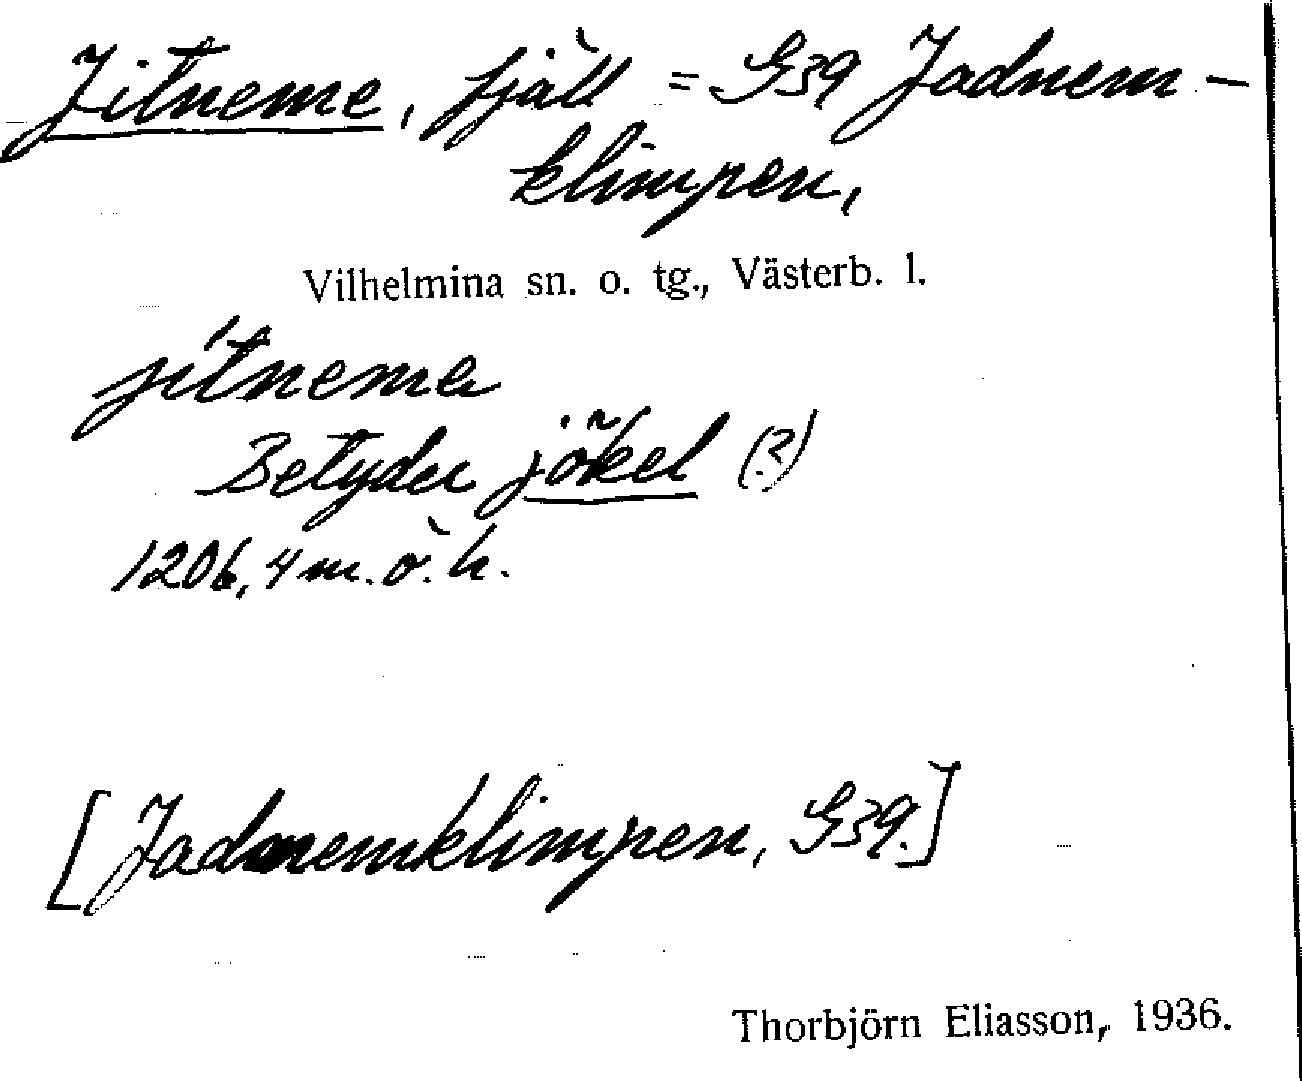 Jitneme, fjäll = G39 Jadnem-
klimpen,
Vilhelmina sn. o. tg., Västerb. l.
jítneme
Betyder jökel (?)
1206,4 m.ö.h.
[Jadnemklimpen, G39.]
Thorbjörn Eliasson, 1936.